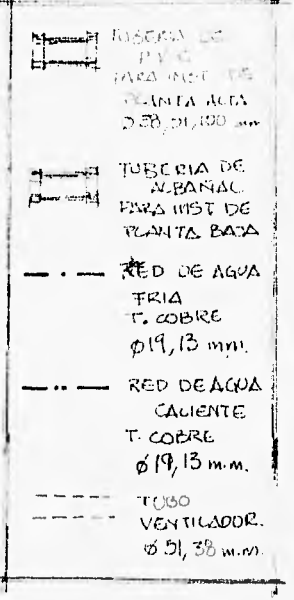 TUBERIA DE
P.V.C
PARA INST. DE
PLANTA ALTA
Ø 38, 51, 100 mm
TUBERIA DE
ALBAÑAL
PARA INST DE
PLANTA BAJA
RED DE AGUA
FRIA
T. COBRE
Ø19, 13 mm.
RED DE AGUA
CALIENTE
T. COBRE
Ø19, 13 m.m.
TUBO
VENTILADOR.
Ø 51, 38 m.m.